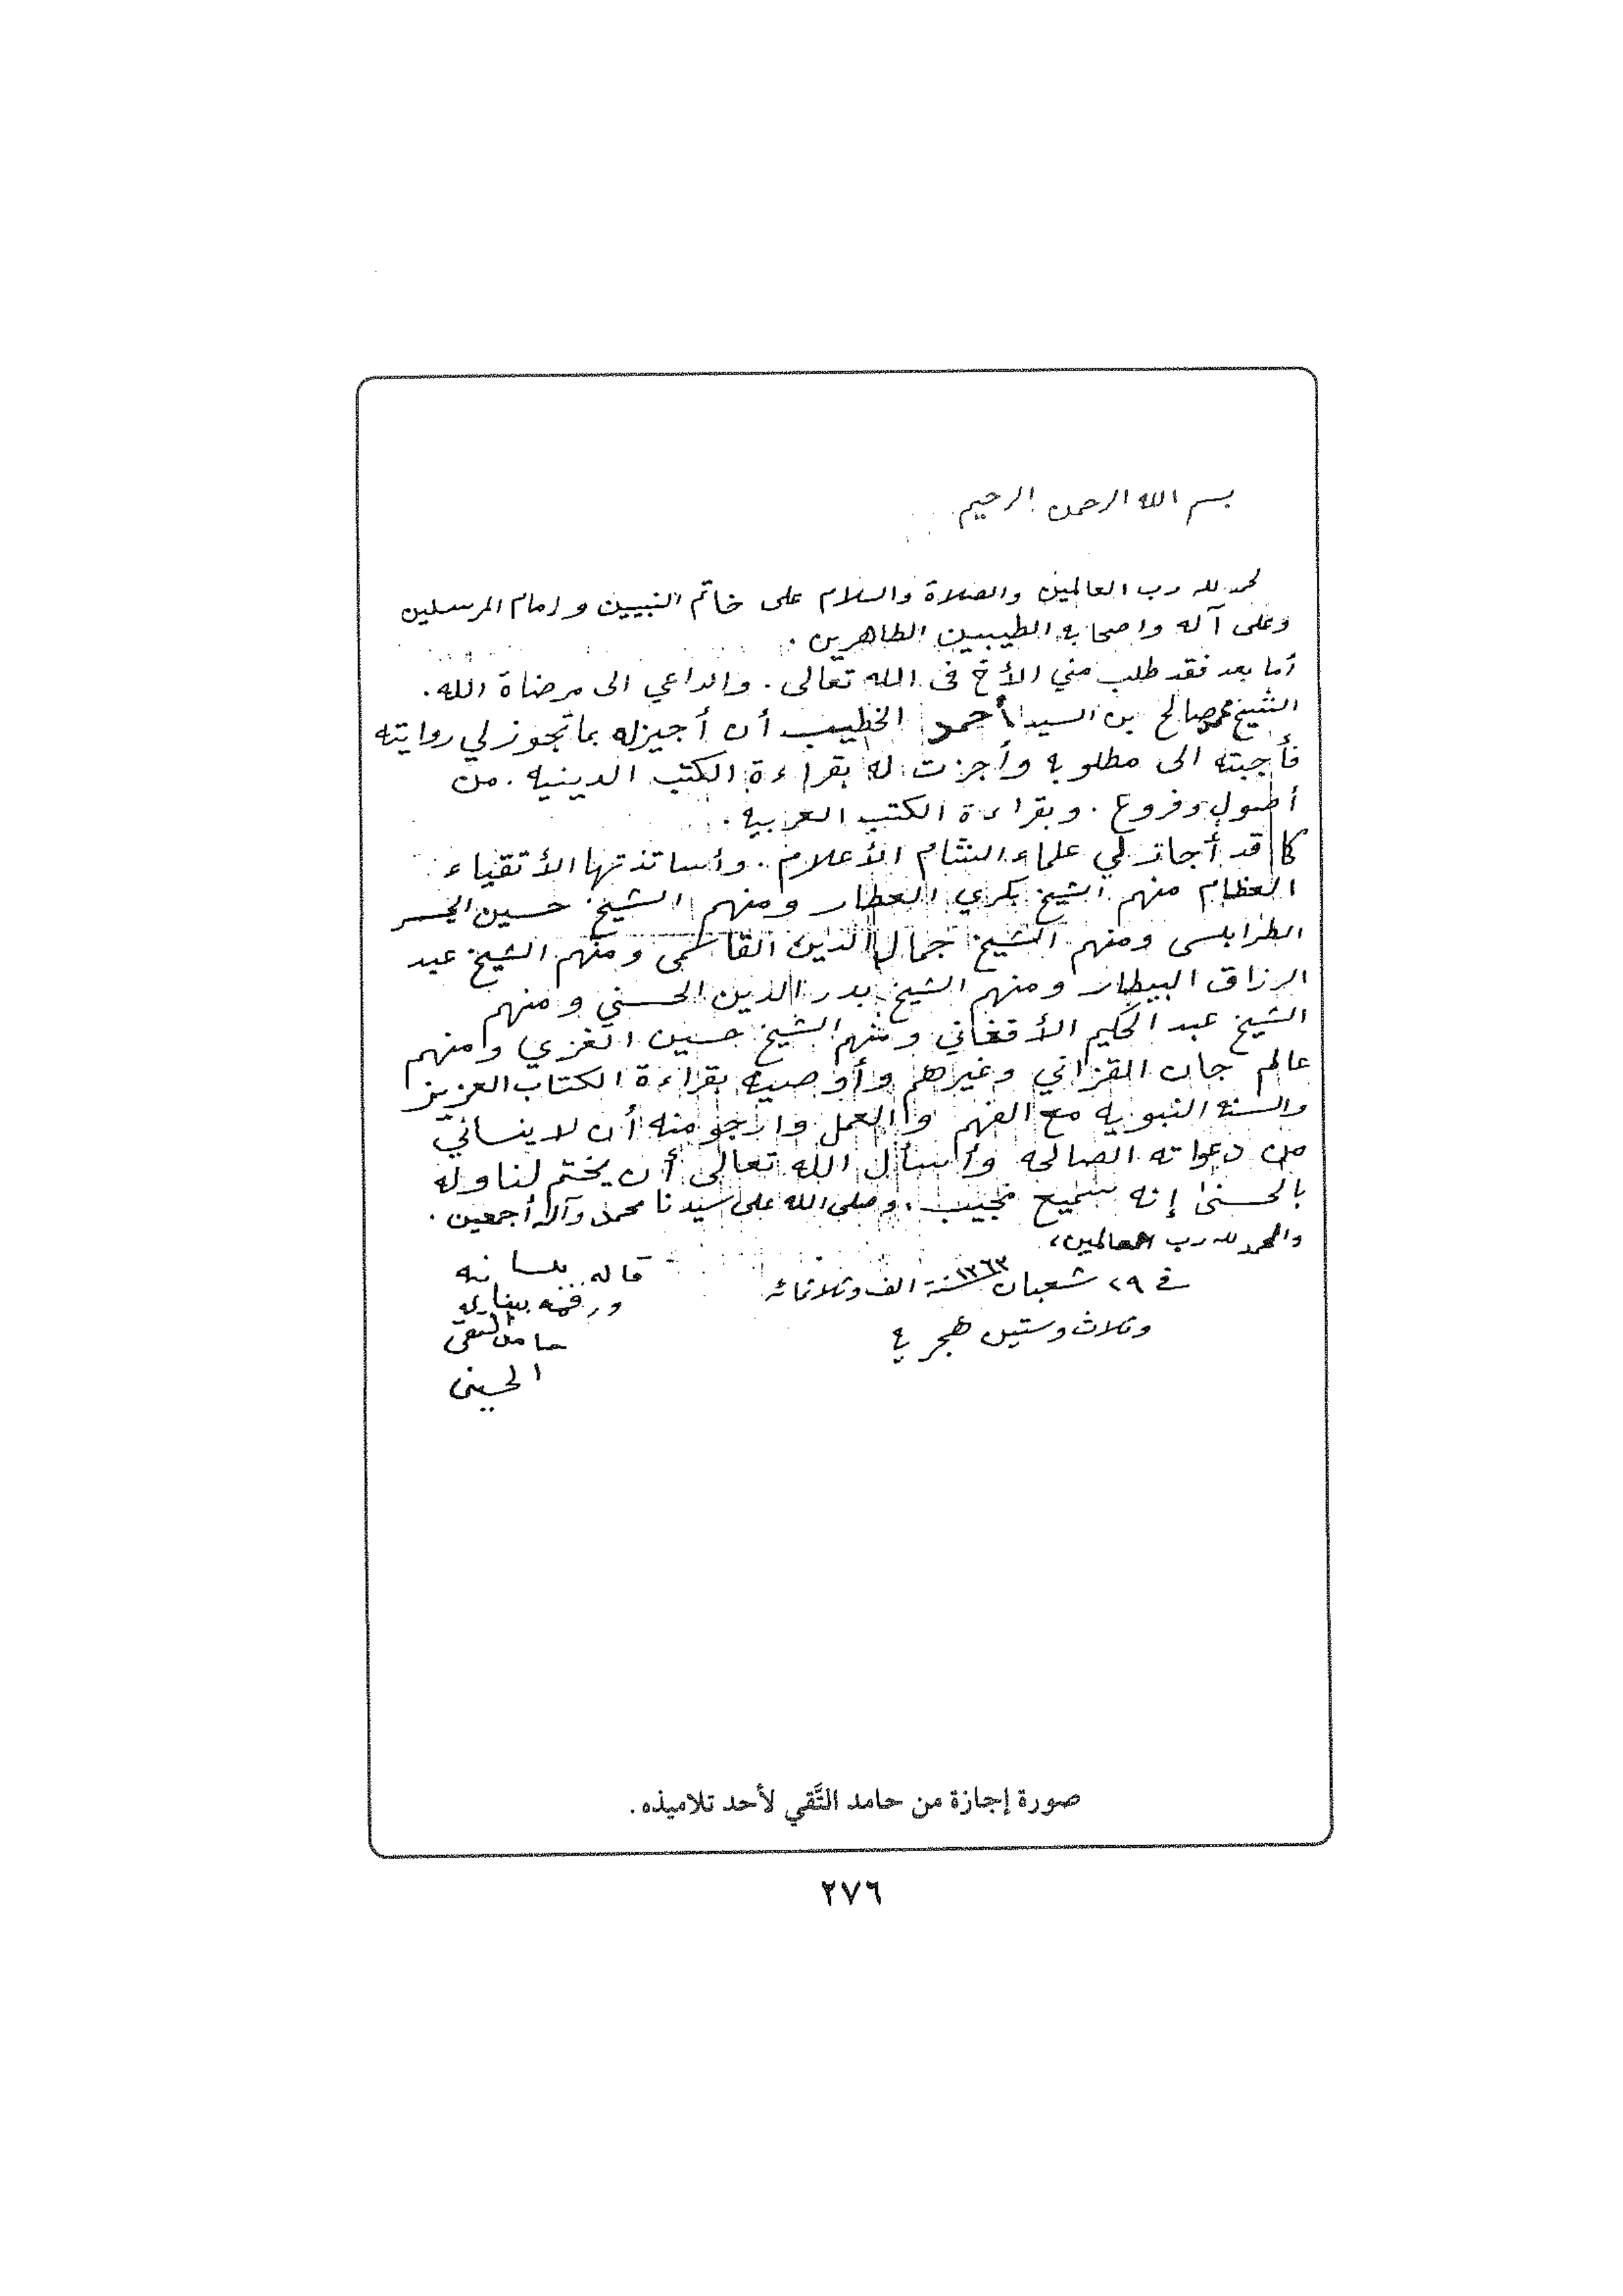 بسم الله الرحمن الرحيم
لحمد لله رب العالمين والصلاة والسلام على خاتم النبيين وإمام المرسلين
وعلى آله واصحابه الطيبين الطاهرين .
أما بعد فقد طلب مني الأخ فى الله تعالى . والداعي الى مرضاة الله .
الشيخ محمد صالح بن السيد أحمد الخطيب أن أجيزله بما تجوز لي روايته
فأجبته الى مطلوبه وأجزت له بقراءة الكتب الدينيه . من
أصول وفروع . وبقراءة الكتب العربيه .
كما قد أجاز لي علماء الشام الأعلام . وأساتذتها الأتقياء
العظام منهم الشيخ بكري العطار ومنهم الشيخ حسين الجسر
الطرابلسى ومنهم الشيخ جمال الدين القاسمى ومنهم الشيخ عبد
الرزاق البيطار ومنهم الشيخ بدر الدين الحسني ومنهم
الشيخ عبد الحكيم الأفغاني ومنهم الشيخ حسين الغزي ومنهم
عالم جان القزاني وغيرهم وأوصيه بقراءة الكتاب العزيز
والسنه النبويه مع الفهم والعمل وارجو منه أن لا ينساني
من دعواته الصالحه وأسأل الله تعالى أن يختم لنا وله
بالحسنى إنه سميع مجيب . وصلى الله على سيدنا محمد وآله أجمعين .
والحمد لله رب العالمين،
في ٢٩ شعبان ١٣٦٣ سنة الف وثلاثمائه
وثلاث وستين هجريه
قاله بلسانه
ورقمه ببنانه
حامد التقى
الحسينى
صورة إجازة من حامد التَّقي لأحد تلاميذه .
٢٧٦